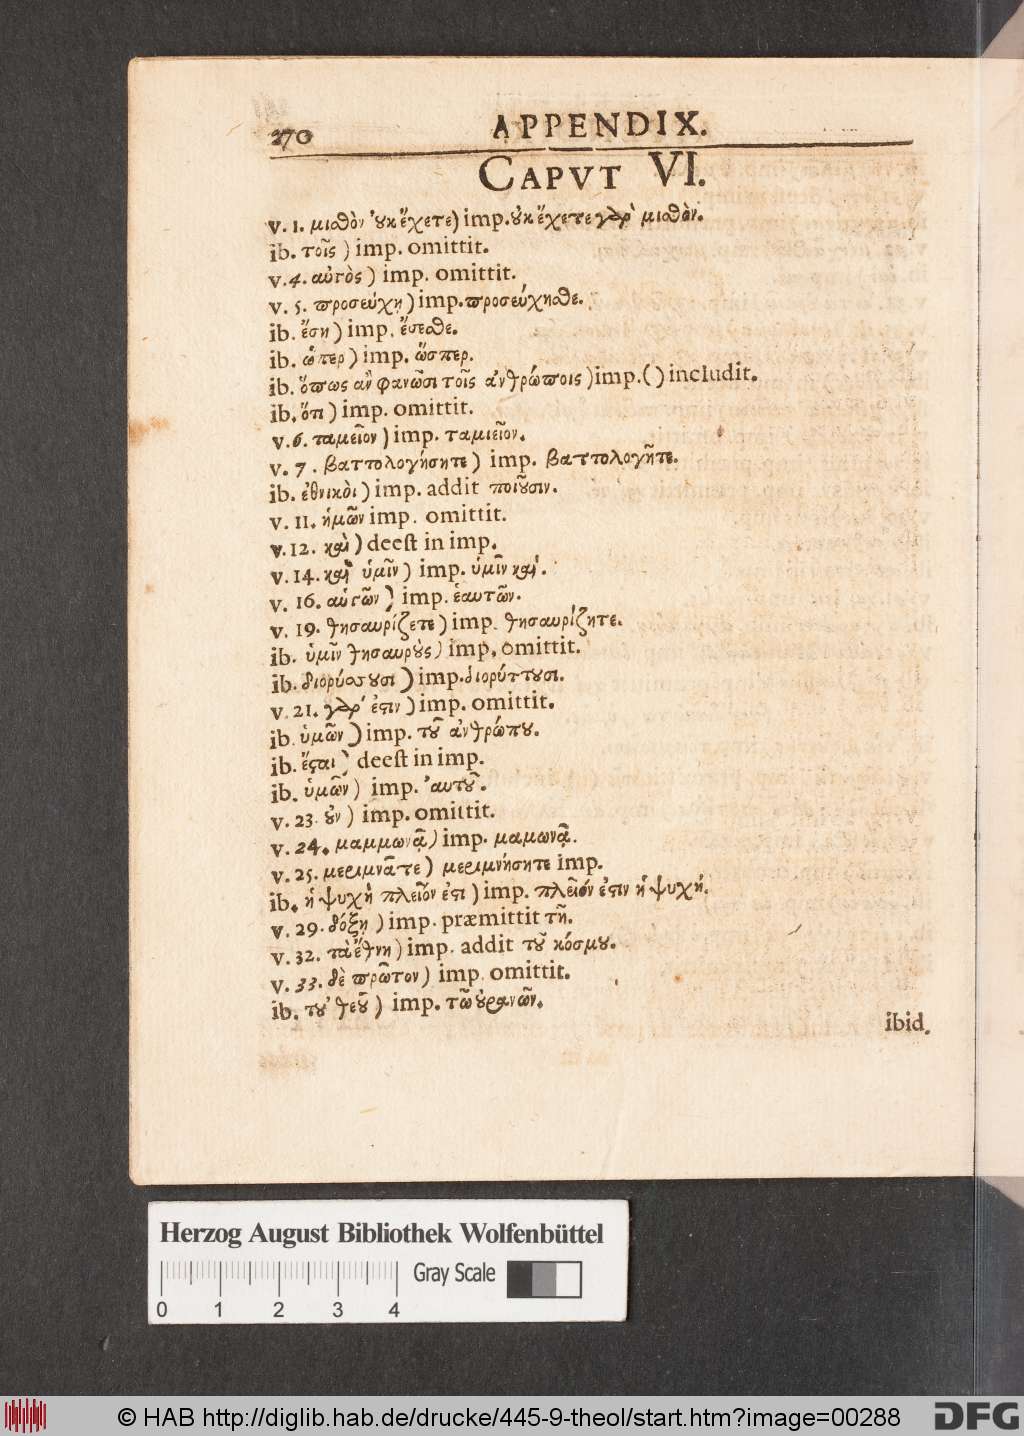 270 APPENDIX.
CAPVT VI.
v. 1. μισθὸν ὀυκ ἔχετε) imp. ὀυκ ἔχετε γὰρ μισθὸν.
ib. τοῖς) imp. omittit.
v. 4. αὐτὸς) imp. omittit.
v. 5. προσεύχῃ) imp. προσεύχησθε.
ib. ἔσῃ) imp. ἔσεσθε.
ib. ὥπερ) imp. ὥσπερ.
ib. ὅπως ἂν φανῶσι τοῖς ἀνθρώποις) imp. ( ) includit.
ib. ὅτι) imp. omittit.
v. 6. ταμεῖον) imp. ταμιεῖον.
v. 7. βαττολογήσητε) imp. βαττολογῆτε.
ib. ἐθνικὸι) imp. addit ποιοῦσιν.
v. 11. ἡμῶν imp. omittit.
v. 12. καὶ) deest in imp.
v. 14. καὶ ὑμῖν) imp. ὑμῖν καὶ.
v. 16. αὑτῶν) imp. ἑαυτῶν.
v. 19. θησαυρίζετε) imp. θησαυρίζητε.
ib. ὑμῖν θησαυροὺς) imp. omittit.
ib. διορύσσουσι) imp. διορύττουσι.
v. 21. γὰρ ἐστιν) imp. omittit.
ib. ὑμῶν) imp. τοῦ ἀνθρώπου.
ib. ἔσται) deest in imp.
ib. ὑμῶν) imp. ἀυτοῦ.
v. 23. οὖν) imp. omittit.
v. 24. μαμμωνᾷ) imp. μαμωνᾷ.
v. 25. μεριμνᾶτε) μεριμνήσητε imp.
ib. ἡ ψυχὴ πλεῖον ἐστι) imp. πλεῖόν ἐστιν ἡ ψυχή.
v. 29. δόξῃ) imp. præmittit τῇ.
v. 32. τὰ ἔθνη) imp. addit τοῦ κόσμου.
v. 33. δὲ πρῶτον) imp. omittit.
ib. τοῦ θεοῦ) imp. τῶν οὐρανῶν.
ibid.
Herzog August Bibliothek Wolfenbüttel
Gray Scale
0 1 2 3 4
© HAB http://diglib.hab.de/drucke/445-9-theol/start.htm?image=00288 DFG